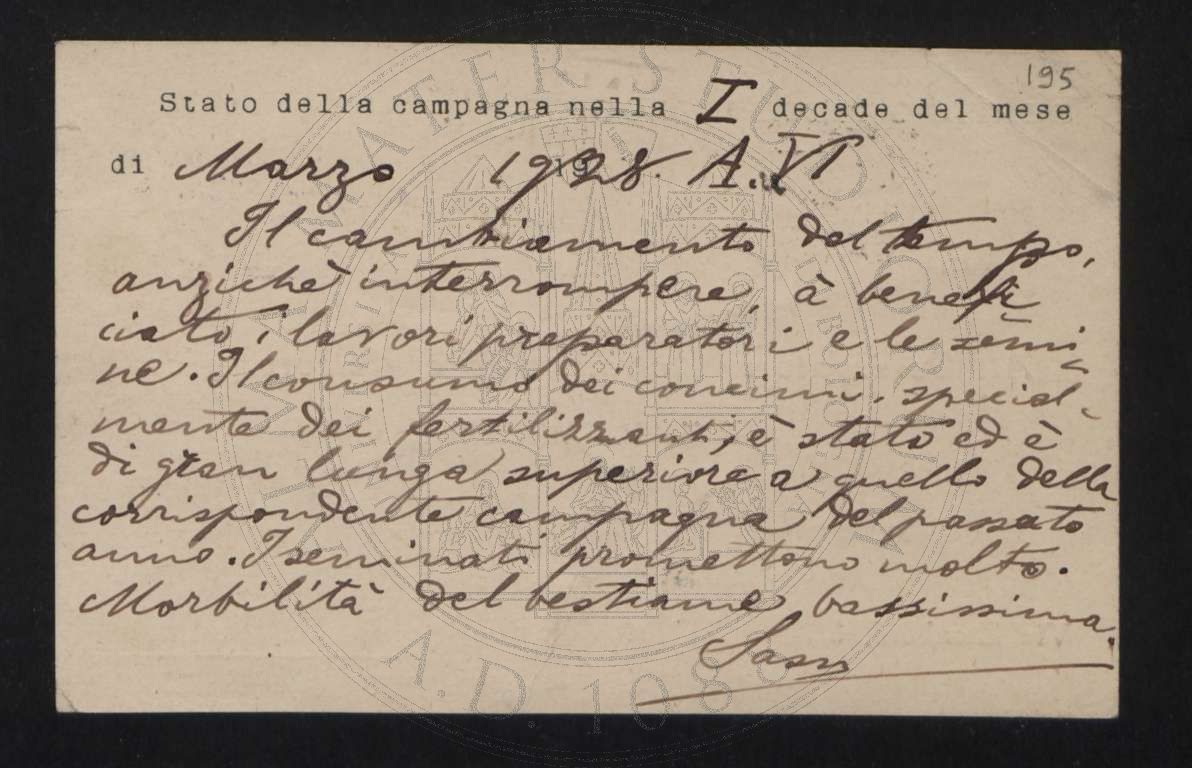 195
Stato della campagna nella I decade del mese
di Marzo 1928. A. VI
Il cambiamento del tempo,
anzichè interrompere, à benefi
ciato, i lavori preparatori e le semi-
ne. Il consumo dei concimi, special-
mente dei fertilizzanti, è stato ed è
di gran lunga superiore a quello della
corrispondente campagna del passato
anno. I seminati promettono molto.
Morbilità del bestiame bassissima.
ALMA MATER STUDIORUM
A.D. 1088